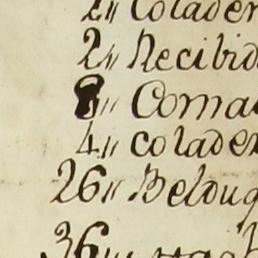 2,, Colader
2,, Recibid
8,, Coma
4,, colader
26,, Belduq
36,,